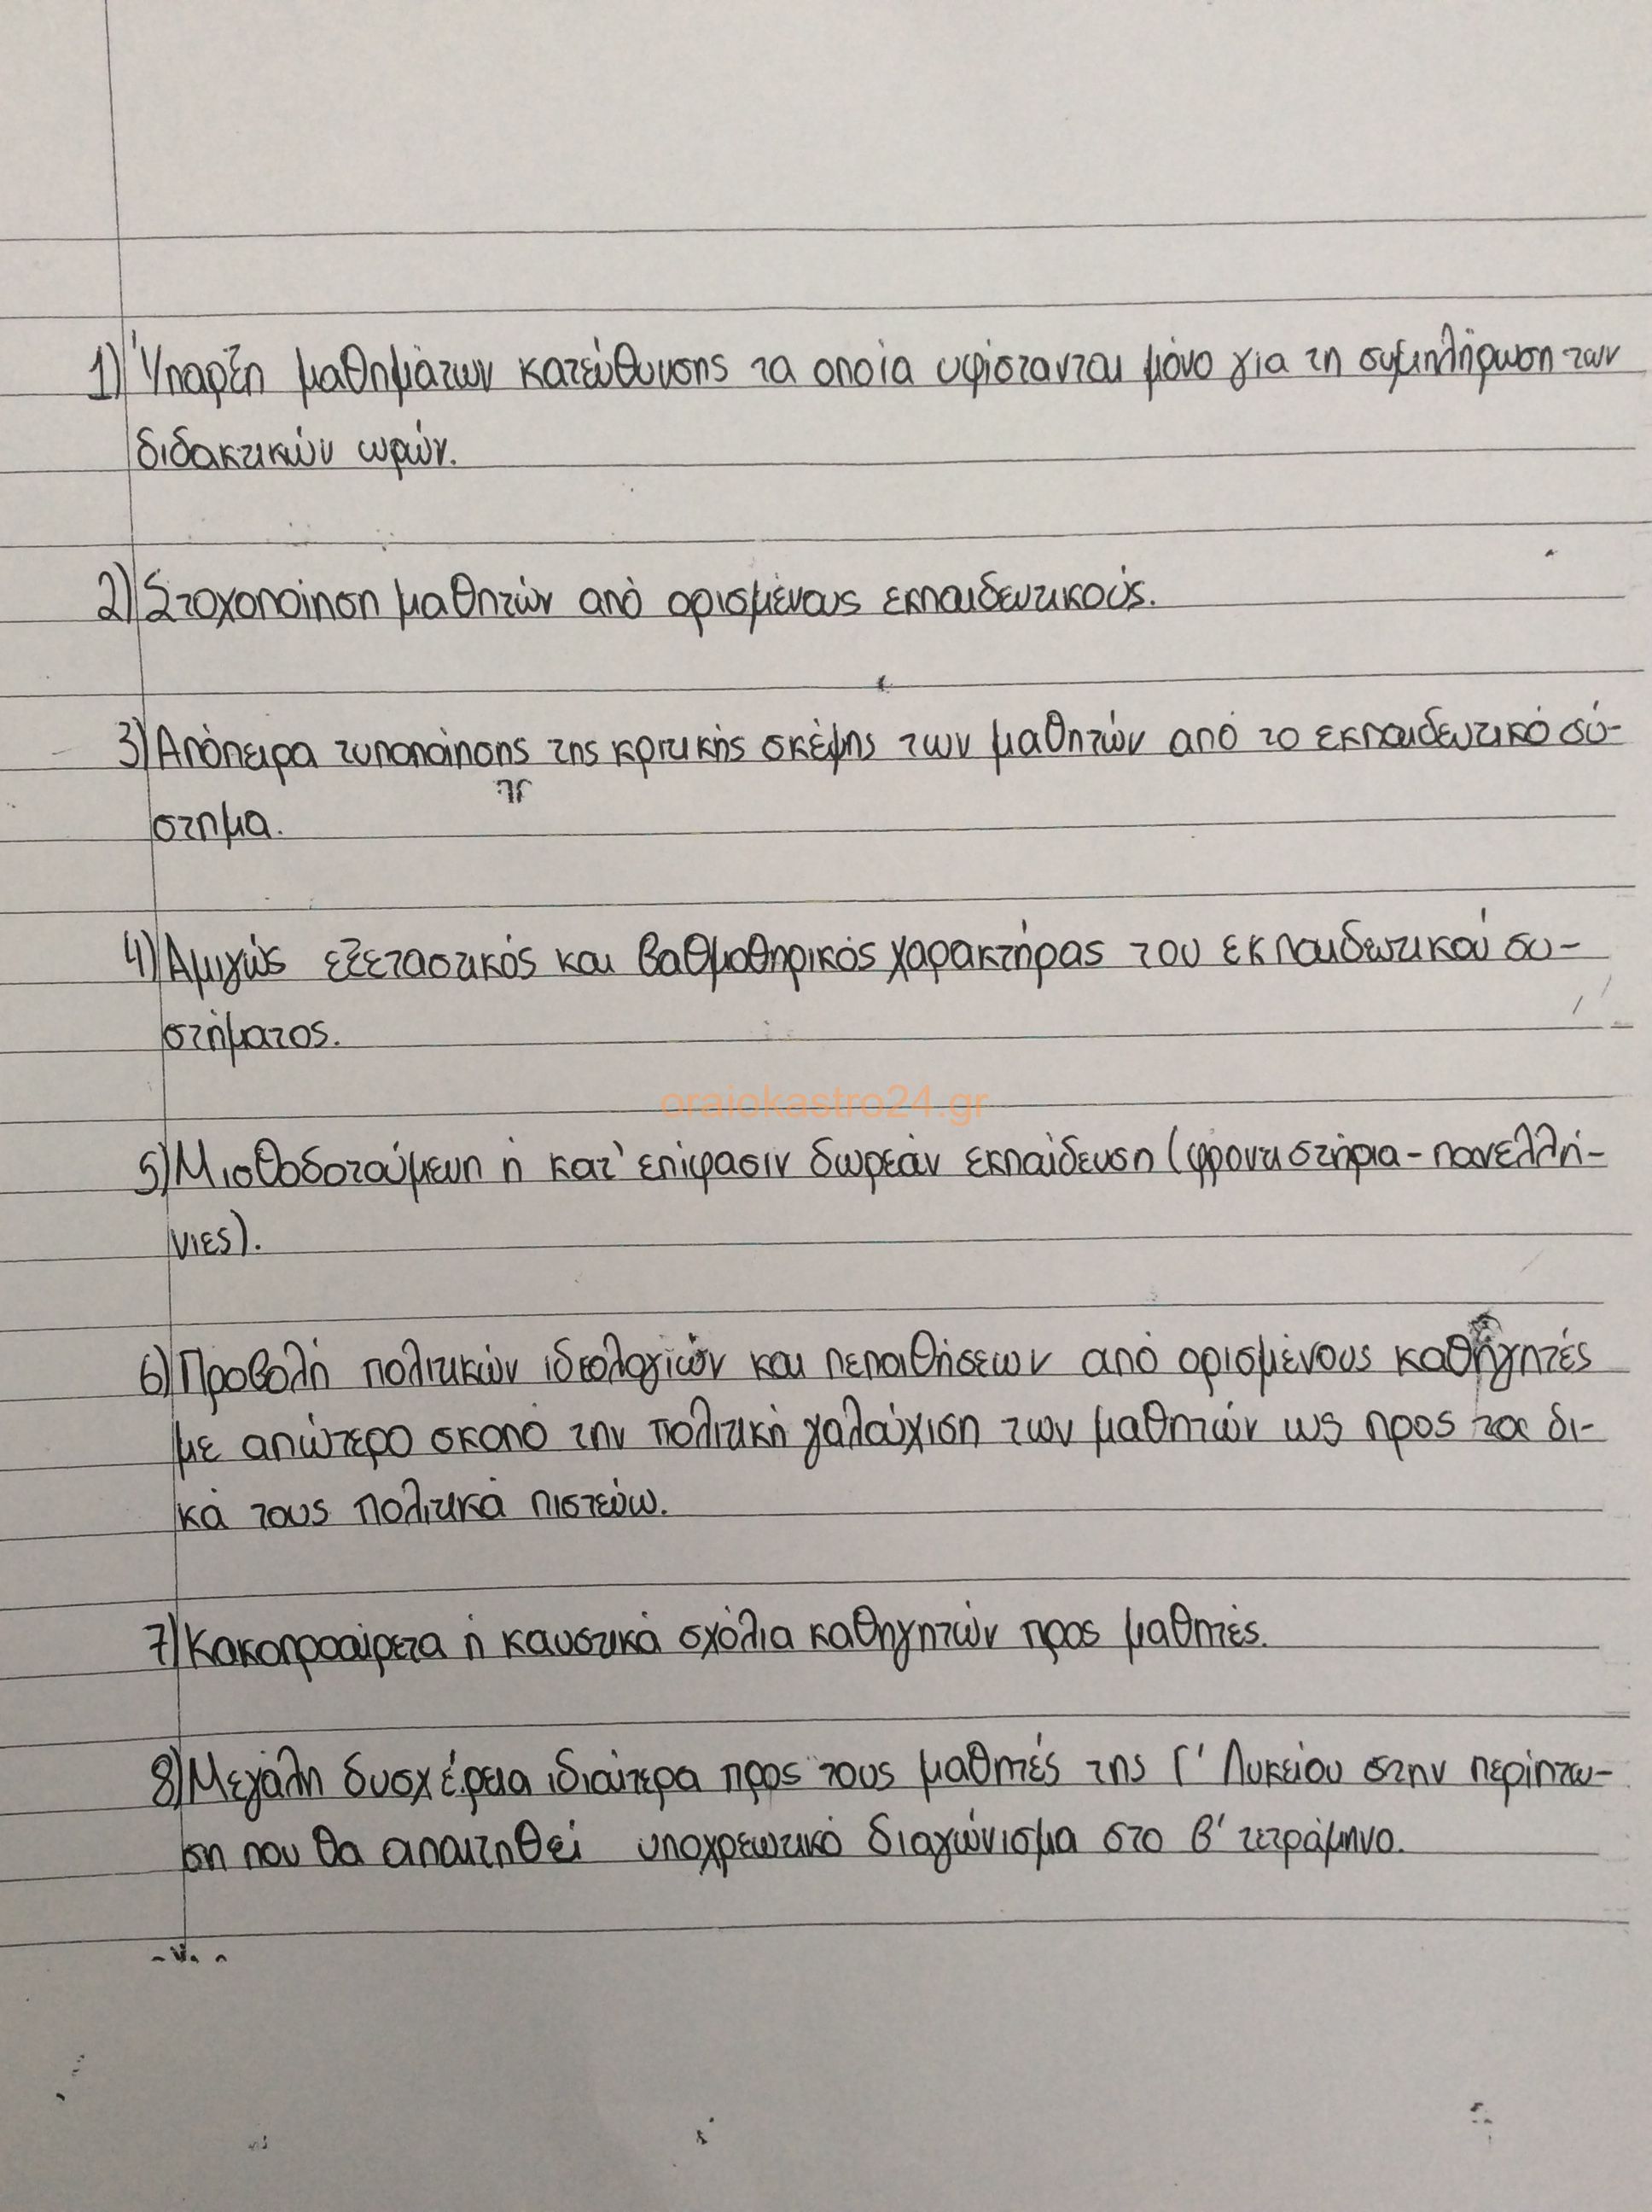 1) Ύπαρξη μαθημάτων κατεύθυνσης τα οποία υφίστανται μόνο για τη συμπλήρωση των
διδακτικών ωρών.
2) Στοχοποίηση μαθητών από ορισμένους εκπαιδευτικούς.
3) Απόπειρα τυποποίησης της κριτικής σκέψης των μαθητών από το εκπαιδευτικό σύ-
στημα.
4) Αμιγώς εξεταστικός και βαθμοθηρικός χαρακτήρας του εκπαιδευτικού συ-
στήματος.
oraiokastro24.gr
5) Μισθοδοτούμενη ή κατ' επίφασιν δωρεάν εκπαίδευση (φροντιστήρια - πανελλή-
νιες).
6) Προβολή πολιτικών ιδεολογιών και πεποιθήσεων από ορισμένους καθηγητές
με απώτερο σκοπό την πολιτική γαλούχιση των μαθητών ως προς τα δι-
κά τους πολιτικά πιστεύω.
7) Κακοπροαίρετα ή καυστικά σχόλια καθηγητών προς μαθητές.
8) Μεγάλη δυσχέρεια ιδιαίτερα προς τους μαθητές της Γ' Λυκείου στην περίπτω-
ση που θα απαιτηθεί υποχρεωτικό διαγώνισμα στο β' τετράμηνο.